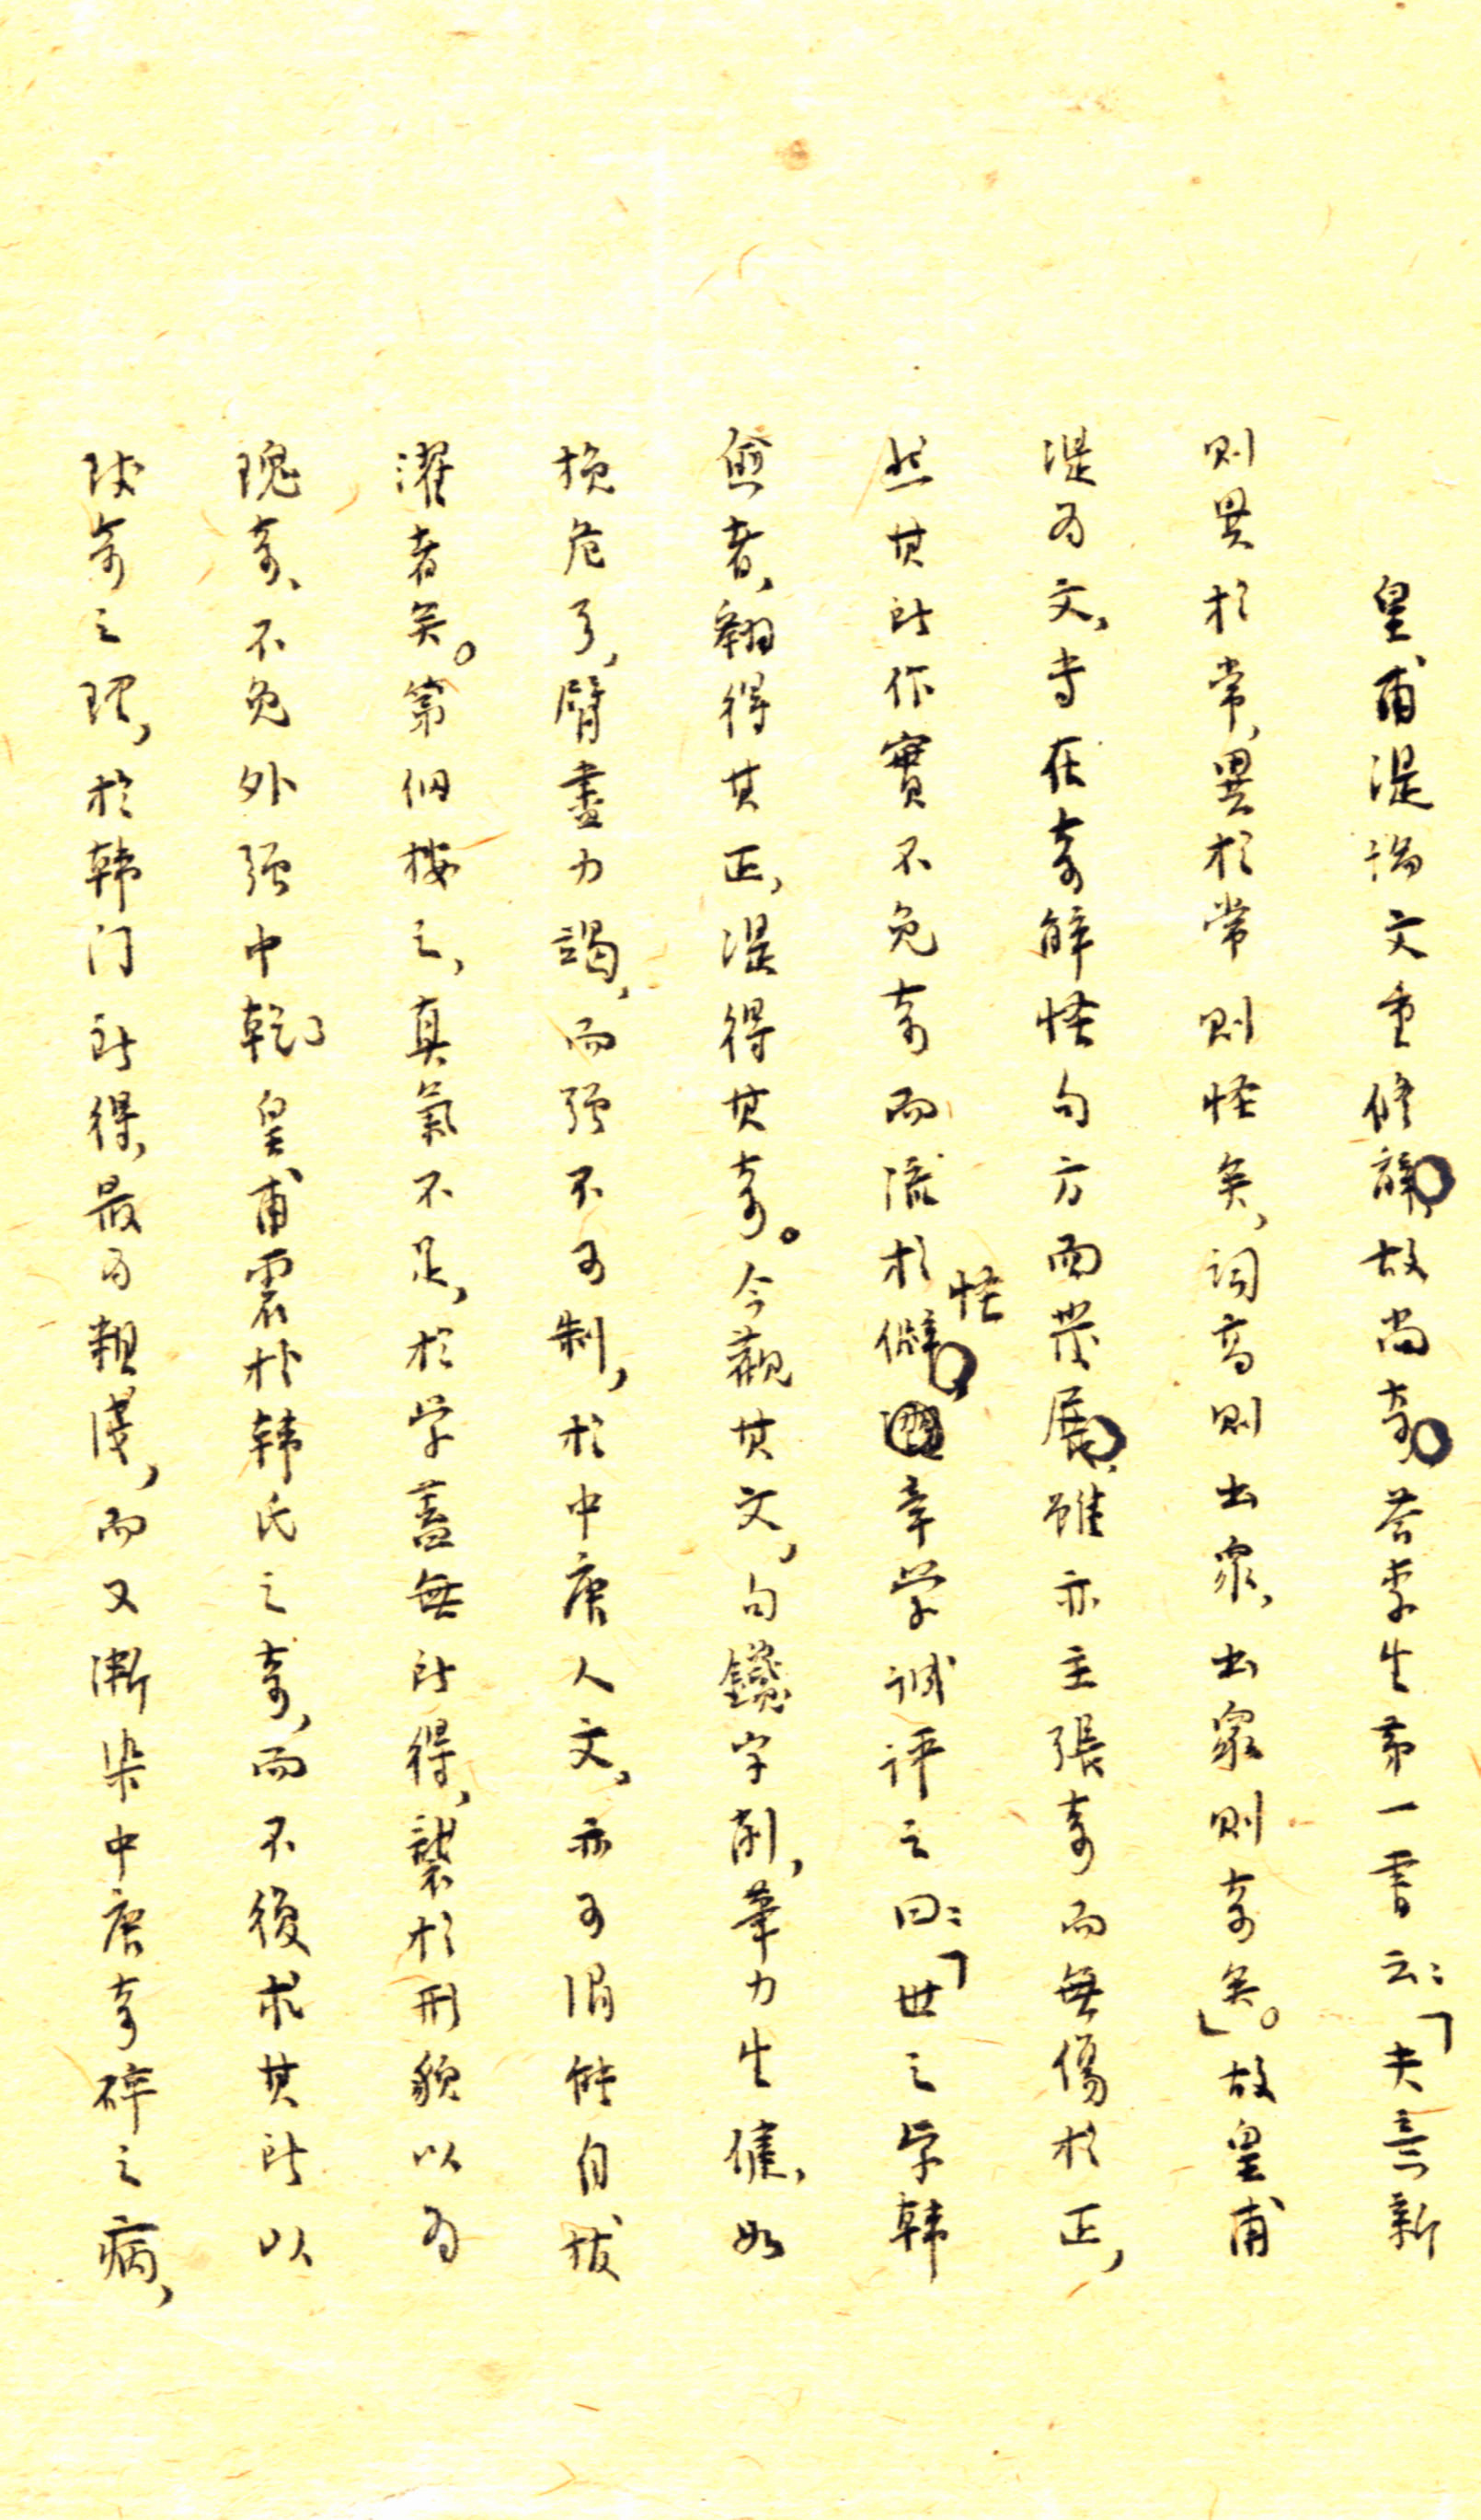 皇甫湜論文重修辭，故尚奇，答李生第一書云：「夫意新
則異於常，異於常則怪矣，詞高則出衆，出衆則奇矣」。故皇甫
湜为文，専在奇辭怪句方面發展，雖亦主張奇而無傷於正，
然其所作實不免奇而流於僻怪，章学誠评之曰：「世之学韩
愈者，翱得其正，湜得其奇。今觀其文，句鑱字削，筆力生健，如
挽危弓，臂盡力竭，而强不可制，於中唐人文，亦可谓能自拔
濯者矣。第细按之，真氣不足，於学蓋無所得，襲於形貌以为
瑰奇，不免外强中乾，皇甫震於韩氏之奇，而不復求其所以
致奇之理，於韩门所得，最为粗淺，而又漸染中唐奇碎之病，